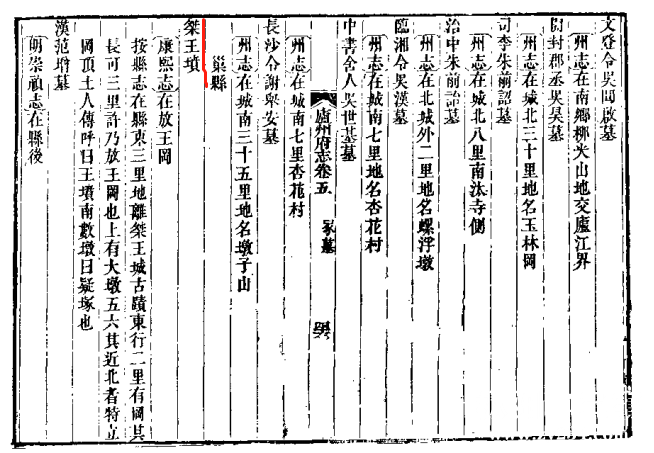 文登令吳聞啟墓
州志在南鄉椰夾山地交廬江界
開封郡丞吳昊墓
州志在城北三十里地名玉林岡
司李朱前詔墓
州志在城北八里南汰寺側
治中朱前詒墓
州志在北城外二里地名螺浮墩
臨湘令吳漢墓
州志在城南七里地名杏花村
中書舍人吳世基墓
廬州府志卷五 冢墓
州志在城南七里杏花村
長沙令謝與安墓
州志在城南三十五里地名墩子山
巢縣
桀王墳
康熙志在放王岡
按縣志在縣東三里地離桀王城古蹟東行二里有岡其
長可三里許乃放王岡也上有大墩五六其近北者特立
岡頂土人傳呼曰王墳南數墩曰疑塚也
漢范增墓
明崇禎志在縣後